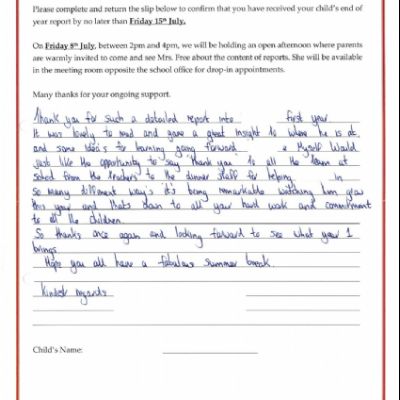 Please complete and return the slip below to confirm that you have received your child's end of
year report by no later than Friday 15th July.
On Friday 8th July, between 2pm and 4pm, we will be holding an open afternoon where parents
are warmly invited to come and see Mrs. Free about the content of reports. She will be available
in the meeting room opposite the school office for drop-in appointments.
Many thanks for your ongoing support.
Thank you for such a detailed report into first year.
It was lovely to read and gave a great insight to where he is at.
and some idea's for learning going forward & Myself Would
just like the opportunity to say 'thank you' to all the team at
school from the teachers to the dinner staff for helping in
so many different way's it's being remarkable watching him grow
this year and thats down to all your hard work and commitment
to all the children.
So thanks once again and looking forward to see what year 1
brings.
Hope you all have a fabulous summer break.
Kindest regards
Child's Name: